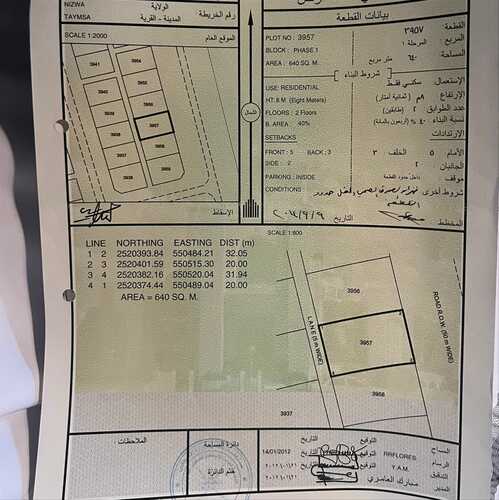 NIZWA
TAYMSA
الولاية
المدينة - القرية
رقم الخريطة
SCALE 1:2000
الموقع العام
3941
3957
الشمال
الإسقاط
بيانات القطعة
PLOT NO : 3957
BLOCK : PHASE 1
AREA : 640 SQ. M.
القطعة ٣٩٥٧
المربع المرحلة ١
المساحة ٦٤٠ متر مربع
شروط البناء
USE: RESIDENTIAL
HT: 8 M (Eight Meters)
FLOORS : 2 Floors
B. AREA 40%
SETBACKS
FRONT : 5 BACK : 3
SIDE : 2
PARKING : INSIDE
CONDITIONS
الإستعمال: سكني فقط
الإرتفاع ٨م (ثمانية أمتار)
عدد الطوابق ٢ (طابقين)
نسبة البناء ٤٠٪ (أربعون بالمائة)
الإرتدادات
الأمام ٥ الخلف ٣
الجانبان ٢
موقف داخل حدود القطعة
شروط أخرى
المخطط
التاريخ
SCALE 1:600
LINE NORTHING EASTING DIST (m)
1 2 2520393.84 550484.21 32.05
2 3 2520401.59 550515.30 20.00
3 4 2520382.16 550520.04 31.94
4 1 2520374.44 550489.04 20.00
AREA = 640 SQ. M.
3956
LANE (6 m WIDE)
3957
ROAD R.O.W. (50 m WIDE)
3958
3937
الملاحظات:
دائرة المساحة
ختم الدائرة
14/01/2012 التاريخ التوقيع RRFLORES المساح
التاريخ التوقيع Y.A.M. الرسام
التاريخ التوقيع التدقيق
التاريخ التوقيع مبارك العامري المدير